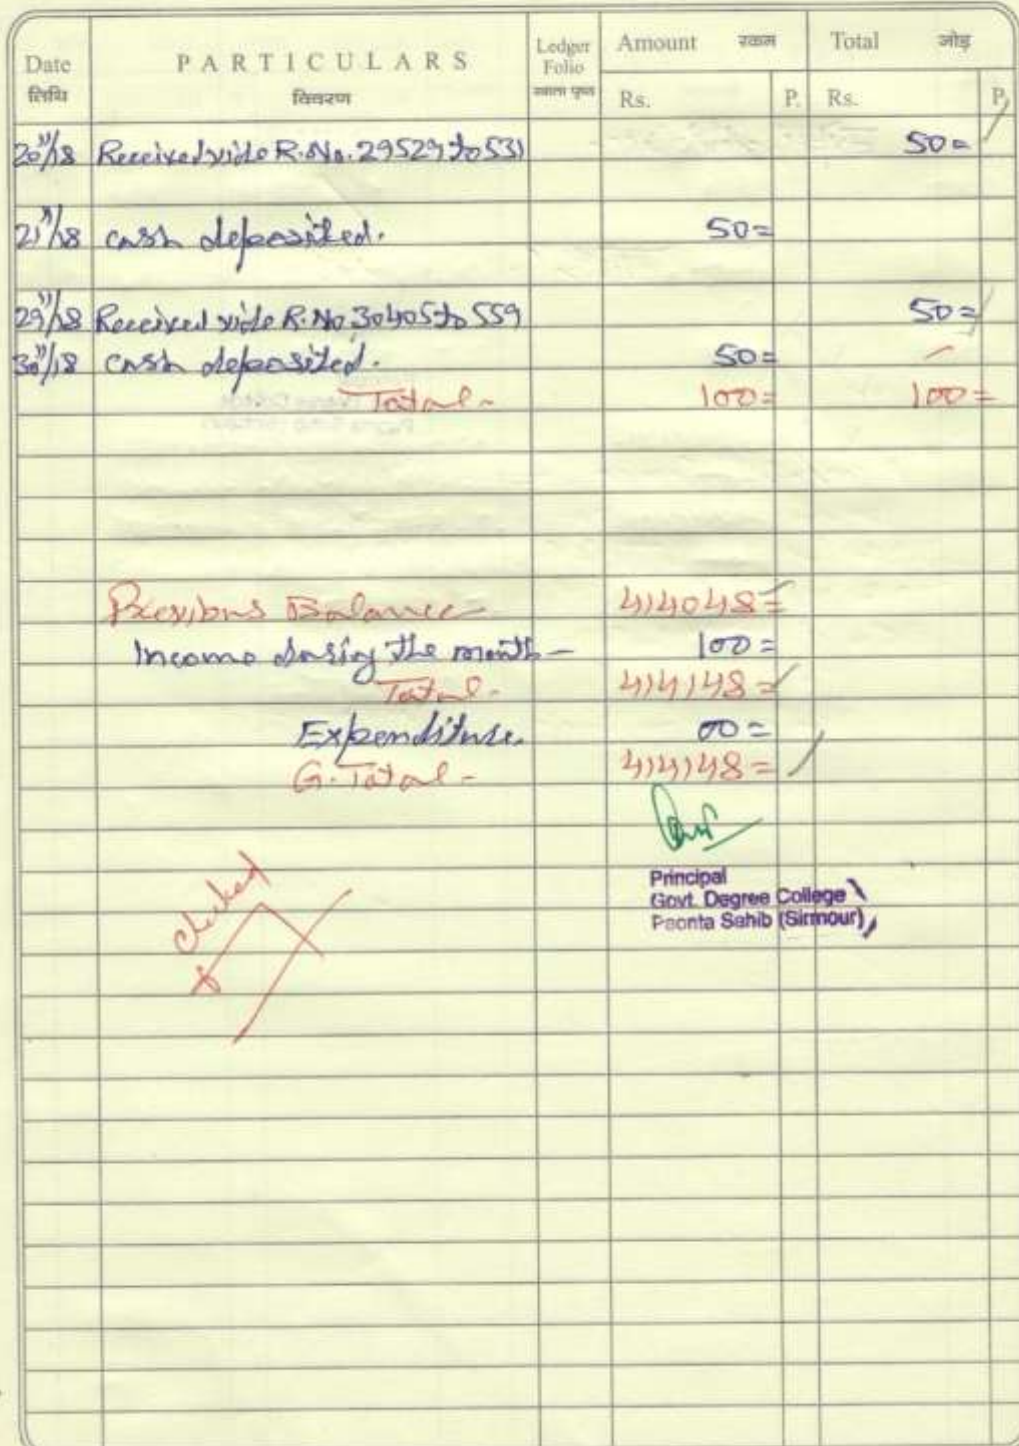 Date PARTICULARS Ledger Folio Amount रकम Total जोड़
तिथि विवरण खाता पृष्ठ Rs. P. Rs. P.
20/11/18 Received vide R.No. 29529 to 531 50=
21/11/18 cash deposited. 50=
29/11/18 Received vide R.No 30405 to 559 50=
30/11/18 cash deposited. 50=
Total- 100= 100=
Previous Balance 414048=
Income during the month - 100=
Total- 414148=
Expenditure 00=
G.Total- 414148=
Principal
Govt. Degree College
Paonta Sahib (Sirmour)
checked